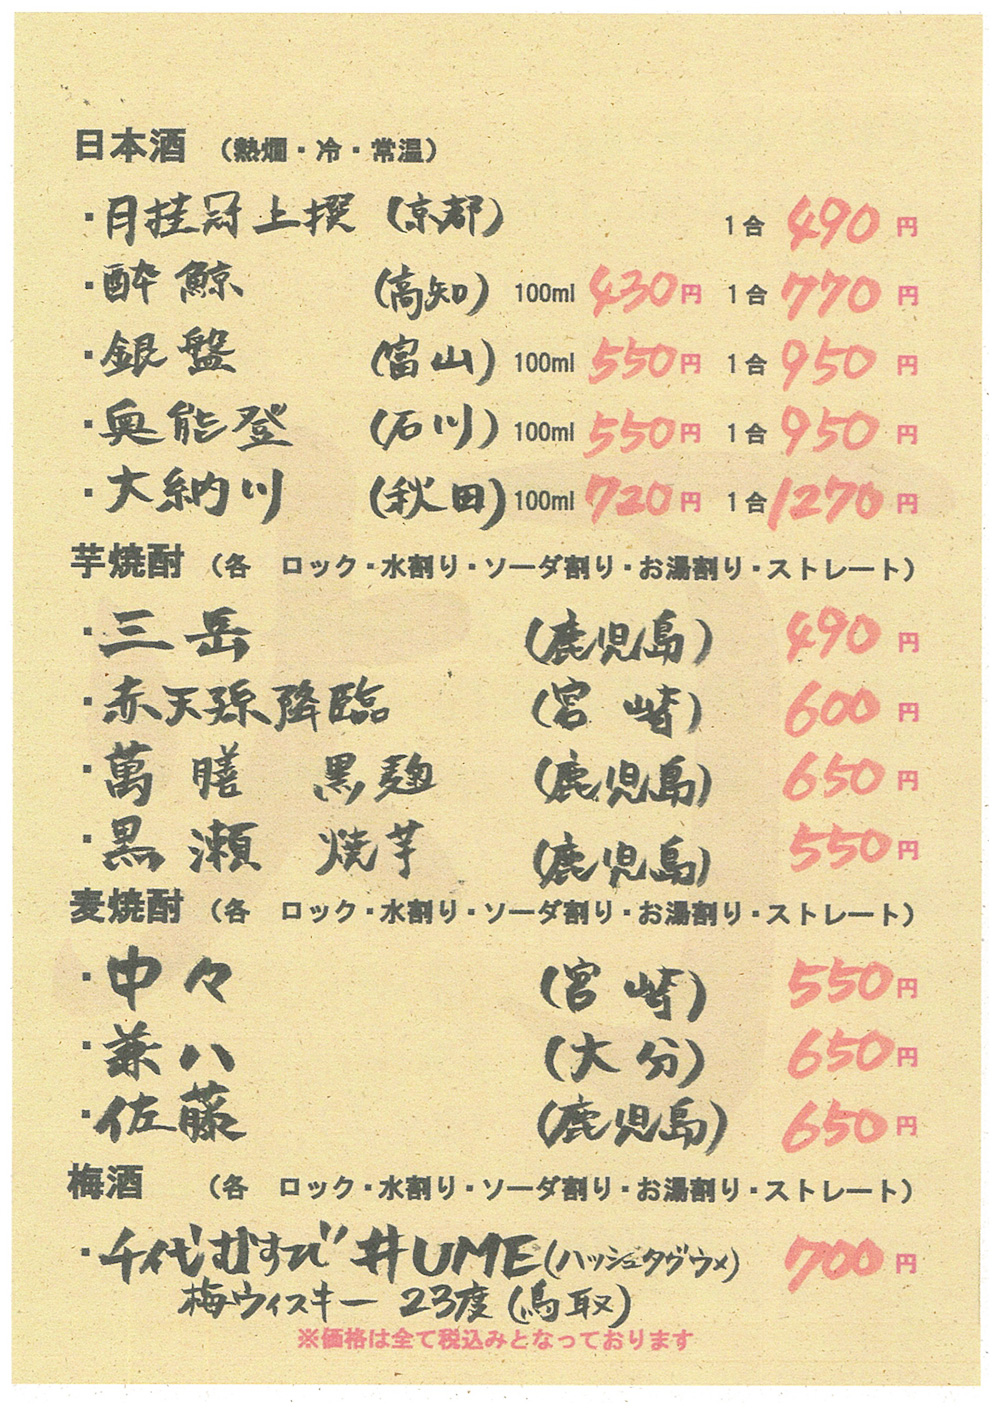 日本酒 （熱燗・冷・常温）
・月桂冠上撰（京都） 1合 490円
・酔鯨 （高知） 100ml 430円 1合 770円
・銀盤 （富山） 100ml 550円 1合 950円
・奥能登 （石川） 100ml 550円 1合 950円
・大納川 （秋田） 100ml 720円 1合 1270円
芋焼酎 （各 ロック・水割り・ソーダ割り・お湯割り・ストレート）
・三岳 （鹿児島） 490円
・赤天孫降臨 （宮崎） 600円
・萬膳 黒麹 （鹿児島） 650円
・黒瀬 焼芋 （鹿児島） 550円
麦焼酎 （各 ロック・水割り・ソーダ割り・お湯割り・ストレート）
・中々 （宮崎） 550円
・兼八 （大分） 650円
・佐藤 （鹿児島） 650円
梅酒 （各 ロック・水割り・ソーダ割り・お湯割り・ストレート）
・千代むすび #UME（ハッシュタグウメ） 700円
梅ウィスキー 23度（鳥取）
※価格は全て税込みとなっております